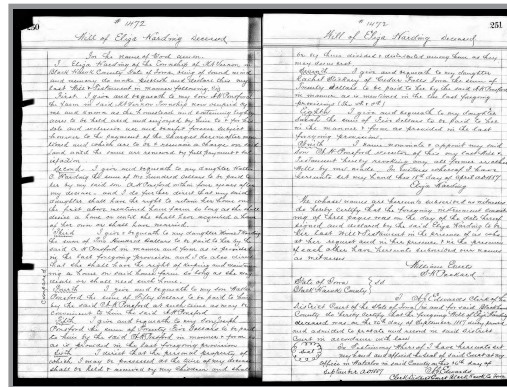 250
# 1472
Will of Eliza Harding Deceased
In the name of God Amen.
I Eliza Harding of the Township of Mt Vernon in
Black Hawk County State of Iowa being of sound mind
and memory do make publish and declare this my
last Will & Testament in manner following viz
First. I give and bequeath to my son
the farm in said Mt Vernon Township now occupied by
me and known as the homestead and containing Eighty
acres to be held used and enjoyed by him to & for his
sole and exclusive use and benefit forever subject
however to the payment of the charges herein after men
tioned and which are to be & remain a charge on said
land until the same are removed by full payment & sat
isfaction
Second. I give and bequeath to my daughter
Harding the sum of Hundred dollars to be paid to
her by my said son within four years after
my decease. and I do further direct that my said
daughter shall have the right to retain her home on
the first above mentioned farm so long as she shall
desire a home or until she shall have acquired a home
of her own or shall have married.
Third I give & bequeath to my daughter Harding
the sum of Five Hundred dollars to be paid to her by the
said in manner and form as is provided
in the last foregoing provision and I do also direct
that she shall have the right of keeping and remain
ing a home on said farm so long as she may
desire or shall need such home.
Fourth I give and bequeath to my son
the sum of Fifty Dollars to be paid to him
by the said at such time as may be
convenient to him the said
Fifth. I give and bequeath to my son Joseph
the sum of Twenty Five Dollars to be paid
to him by the said in manner & form
as is provided in the last foregoing provision
Sixth I direct that the personal property of
which I may be possessed at the time of my decease
shall be held & owned by my children and shall
251
# 1472
Will of Eliza Harding Deceased
be by them divided & distributed among them as they
may deem best.
Seventh I give and bequeath to my daughter
Rachel of Cedar Falls Iowa the sum of
Twenty dollars to be paid to her by the said
in manner as is mentioned in the last foregoing
provisions
Eighth I give and bequeath to my daughter
Sarah the sum of Five dollars to be paid to her
in the manner & form as provided in the last
foregoing provision.
Ninth I hereby nominate & appoint my said
son Executor of this my last Will &
Testament hereby revoking any all former or other
Wills by me made. In witness whereof I have
hereunto set my hand this day of April AD 1887
Eliza Harding
We whose names are hereunto subscribed as witnesses
do hereby certify that the foregoing instrument consist
ing of three pages was on the day of the date thereof
signed and declared by the said Eliza Harding to be
her last Will & Testament in the presence of us who
at her request and in her presence & in the presence
of each other have hereunto subscribed our names
as witnesses
William
Packard
State of Iowa } ss
Black Hawk County }
I Edwards Clerk of the
District Court of the State of Iowa in and for said Black Hawk
County do hereby certify that the foregoing Will of Eliza Harding
deceased was on the day of September 1887 duly proved
and admitted to probate and record in said District
Court in accordance with law
In Testimony Whereof I have hereunto set
my hand and official seal of said Court at my
office in Waterloo in said County this day of
September AD 1887
Edwards
Clerk District Court Black Hawk Co Iowa